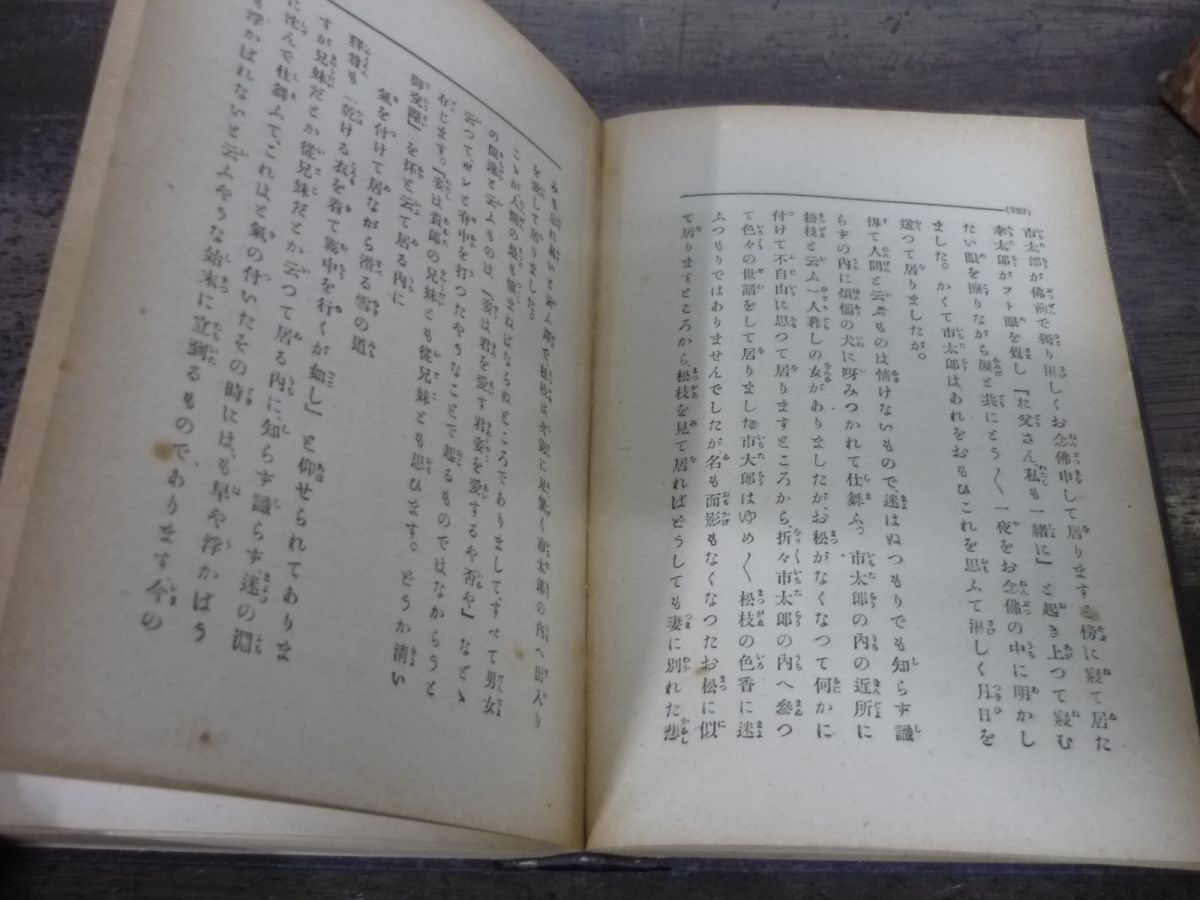 (222)
市太郎が佛前で獨り淋しくお念佛申して居りますと傍に寢て居た
幸太郎がフト眼を覺し「お父さん私も一緒に」と起き上つて寢む
たい眼を擦りながら淚と共にとう〱一夜をお念佛の中に明かし
ました。かくて市太郎はあれをおもひこれを思ふて淋しく月日を
送つて居りましたが。
扨て人間と云ふものは情けないもので、迷はぬつもりでも知らず識
らずの內に煩惱の犬に呀みつかれて仕舞ふ。市太郎の內の近所に
松枝と云ふ一人暮しの女がありましたが、お松がなくなつて何かに
付けて不自由に思つて居りますところから、折々市太郎の內へ參つ
て色々の世話をして居りました市太郎はゆめ〱松枝の色香に迷
ふつもりではありませんでしたが名も面影もなくなつたお松に似
て居りますところから、松枝を見て居ればどうしても妻に別れた悲
みも忘れ云ふ譯で松枝は次第に足繁く市太郎の內へ出入り
を致して居りました。
こゝが人間の最も愼まねばならぬところでありまして、すべて男女
の間違と云ふものは「妾は君を愛す君妾を愛するや否や」などゝ
云つて、ポンと脊中を打つたやうなことで起るものではなからうと
存じます。「妾は貴郞の兄妹とも從兄妹とも思ひます。どうか淸い
御交際」を抔と云て居る內に
氣を付けて居ながら滑る雪の道
釋尊も「乾ける衣を着て霧中を行くが如し」と仰せられてありま
すが兄妹だとか從兄妹だとか云つて居る內に、知らず識らず迷の淵
に沈んで仕舞ふて、これはと氣の付いたその時には、も早や浮かばう
も浮かばれないと云ふやうな始末に立到るものであります今の